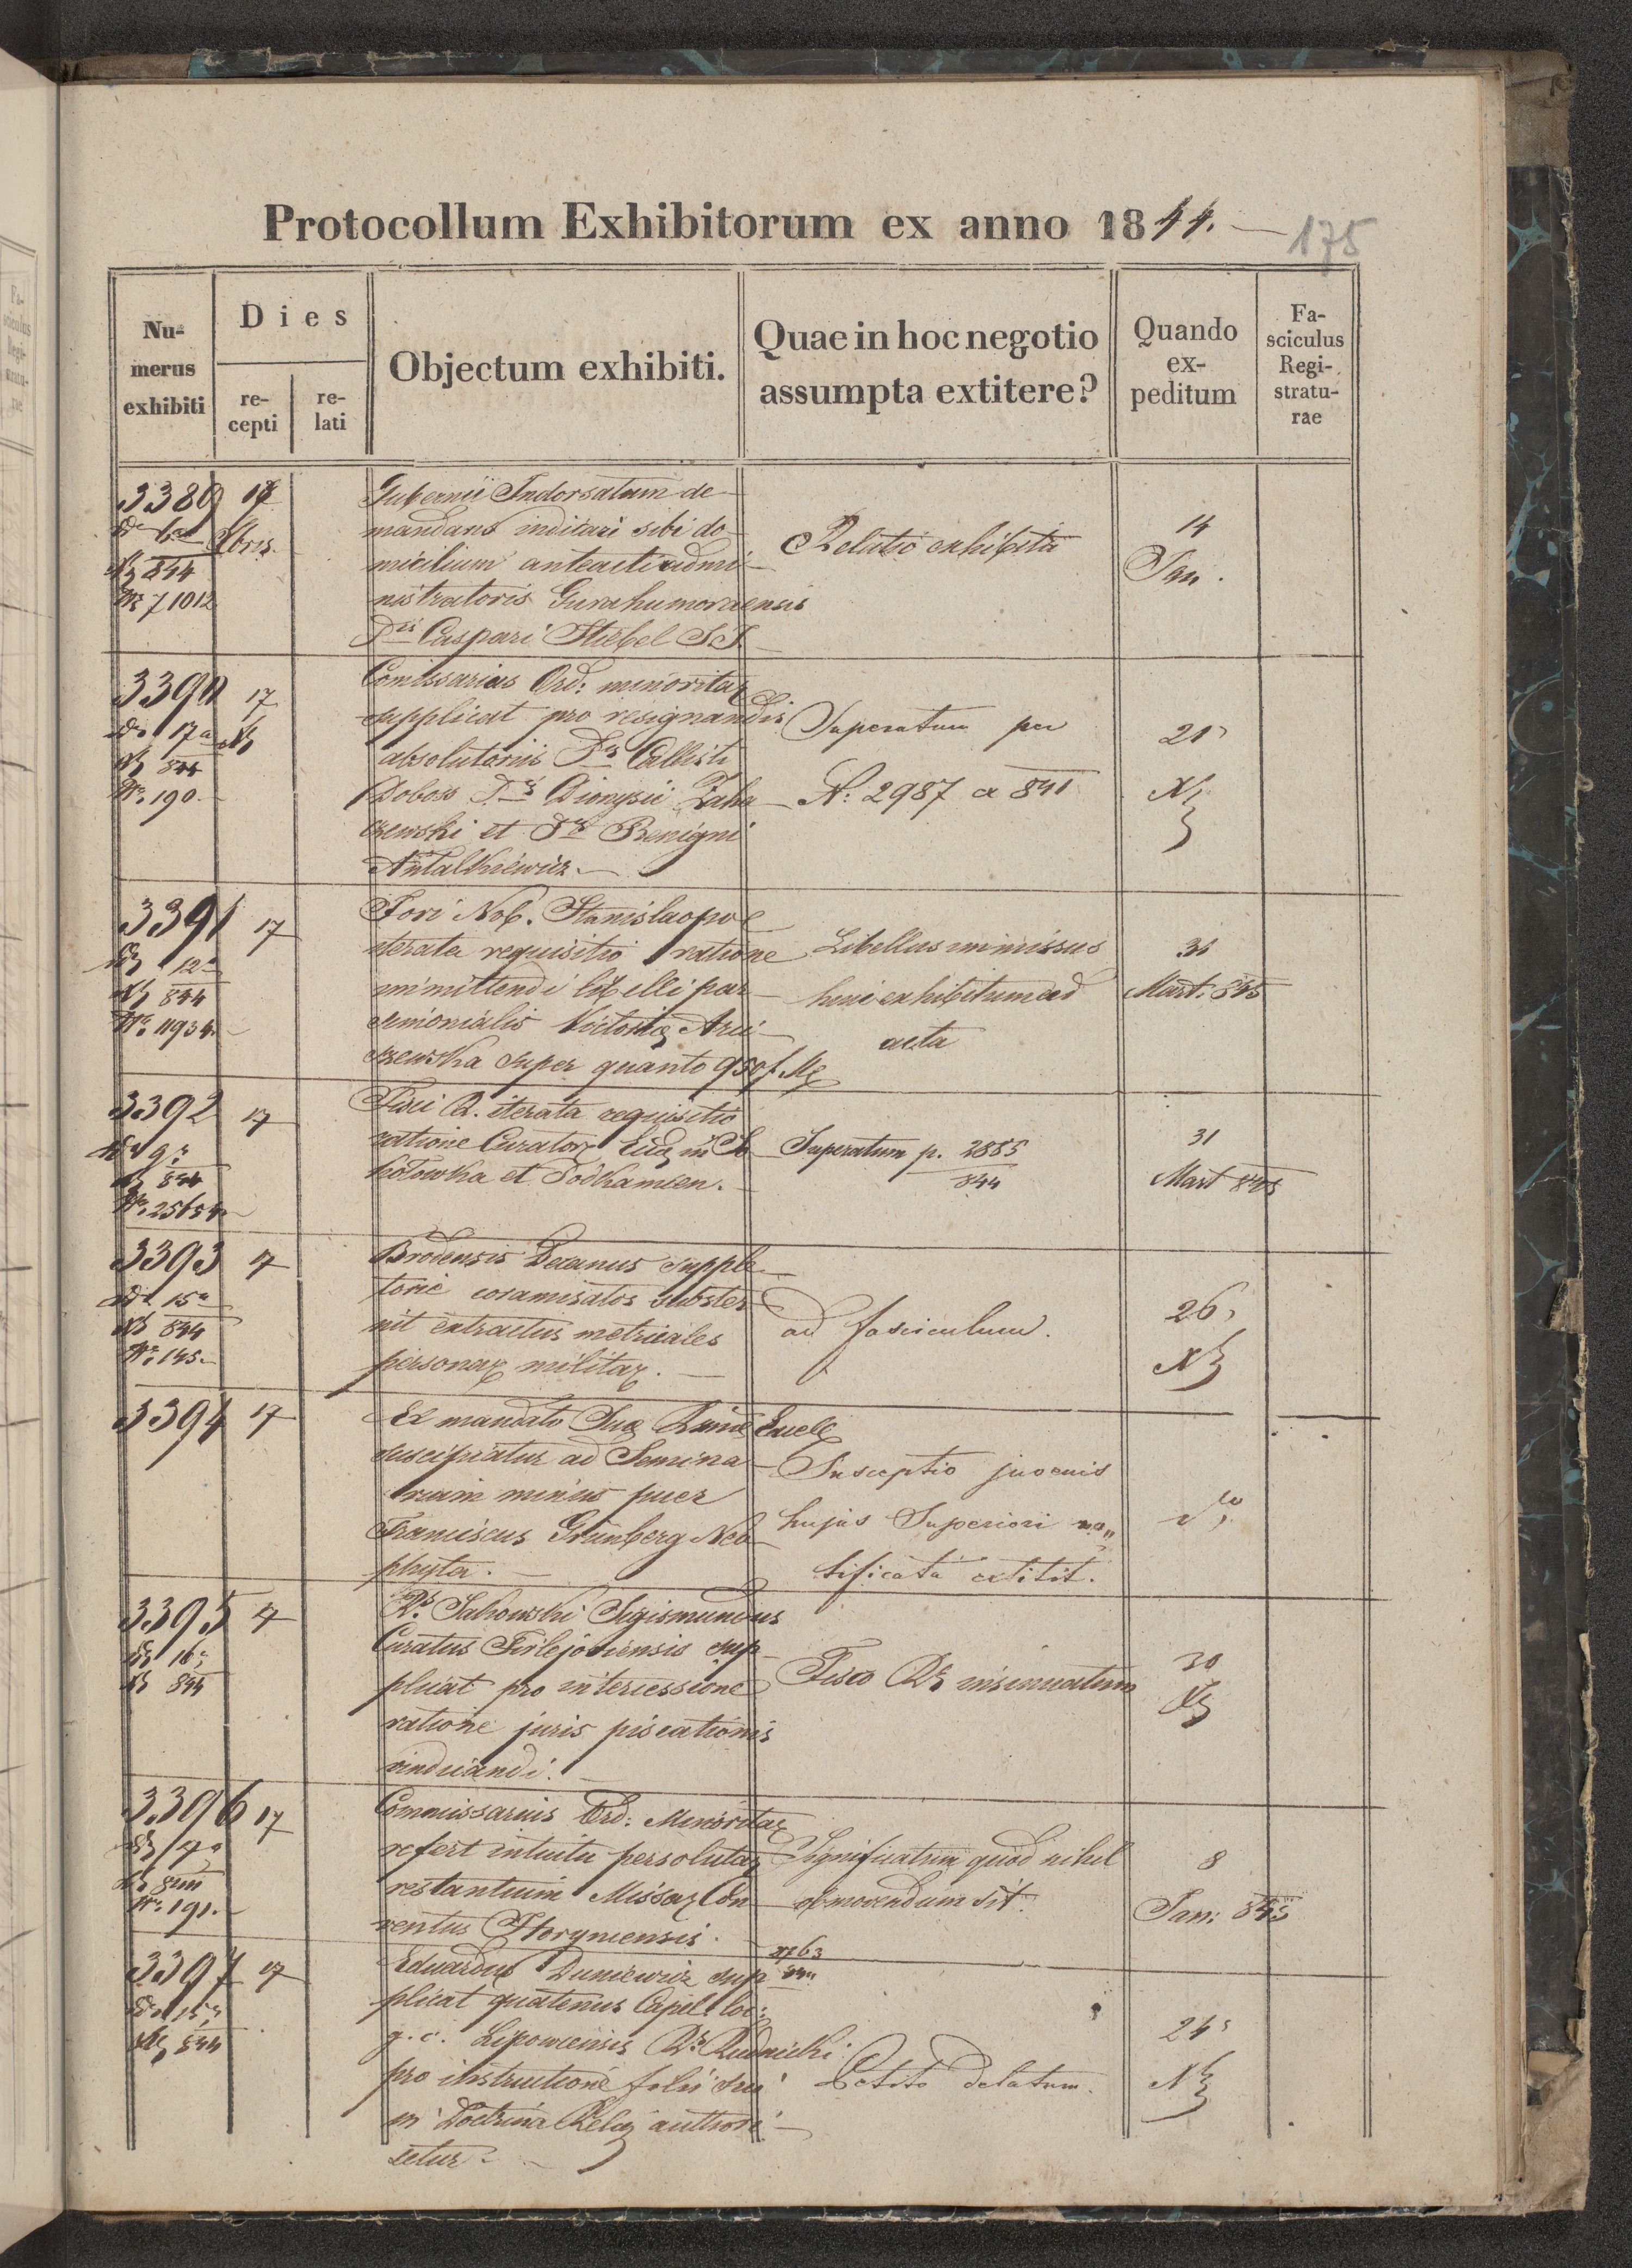 Protocollum Exhibitorum ex anno 1844. —
175
Nu-
merus
exhibiti
Dies
re-
cepti
re-
lati
Objectum exhibiti.
Quae in hoc negotio
assumpta extitere?
Quando
ex-
peditum
Fa-
sciculus
Regi-
stratu-
rae
3389
17
Xbris
844
71012
Gubernii Indorsatum de-
mandans indicari sibi do-
micilium anteacti admi-
nistratoris Gurahumoraensis
Caspari Stiebel
Relatio exhibita
14
Jan.
3390
17
17a
844
No. 190.
Comissarius Ord: minoritar
supplicat pro resignandis
absolutoriis Callisti
Doboss Dionysii Zaha-
rewski et Benigni
Antalkiewicz.
Superatum per
N: 2987 ex 841
21
3391
17
12a
844
No. 11934.
Fori Nob. Stanislaopol
iterata requisitio ratione
immittendi libelli par-
simonialis
super quanto 950 f.
Libellus immissus
hocce exhibitum ad
acta
31
Mart. 845
3392
17
9a
844
No. 25654
Fisci R. iterata requisitio
ratione
et Podkamien.
Superatum p. 2885
844
31
Mart 845
3393
17
15a
844
No. 145.
Brodensis Decanus supple-
torie coramisatos subster-
nit extractus metricales
personar militar.
ad fasciculum.
26
3394
17
Ex mandato Suae
suscipiatur ad Semina-
rium minus puer
Franciscus Grünberg Neo-
phyta.
Susceptio juvenis
hujus Superiori no-
tificata extitit.
3395
17
16
844
Sakowski Sigismundus
Curatus Firlejoviensis sup-
plicat pro intercessione
ratione juris piscationis
vindicandi.
Fisco insinuatum
30
3396
17
17a
844
No. 191.
Commissarius Ord: Minoritar
refert intuitu persolutar
restantium Missar Con-
ventus Horyniensis.
Significatum quod nihil
obmovendum sit.
8
Jan: 845
3397
17
15
844
63
Eduardus Duniewicz sup-
plicat quatenus Capel. loc:
g. c. Lipowcensis Rudnicki
pro instructione
in Doctrina authori-
setur.
Petito delatum.
24